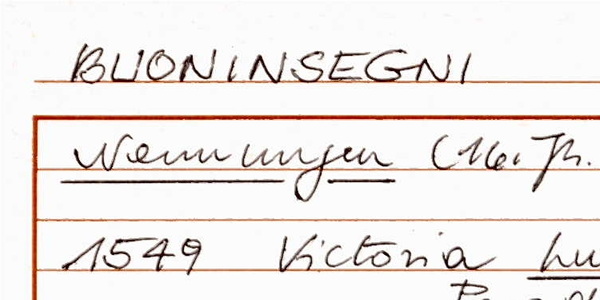 BUONINSEGNI
Nennungen (16. Jh.
1549 Victoria